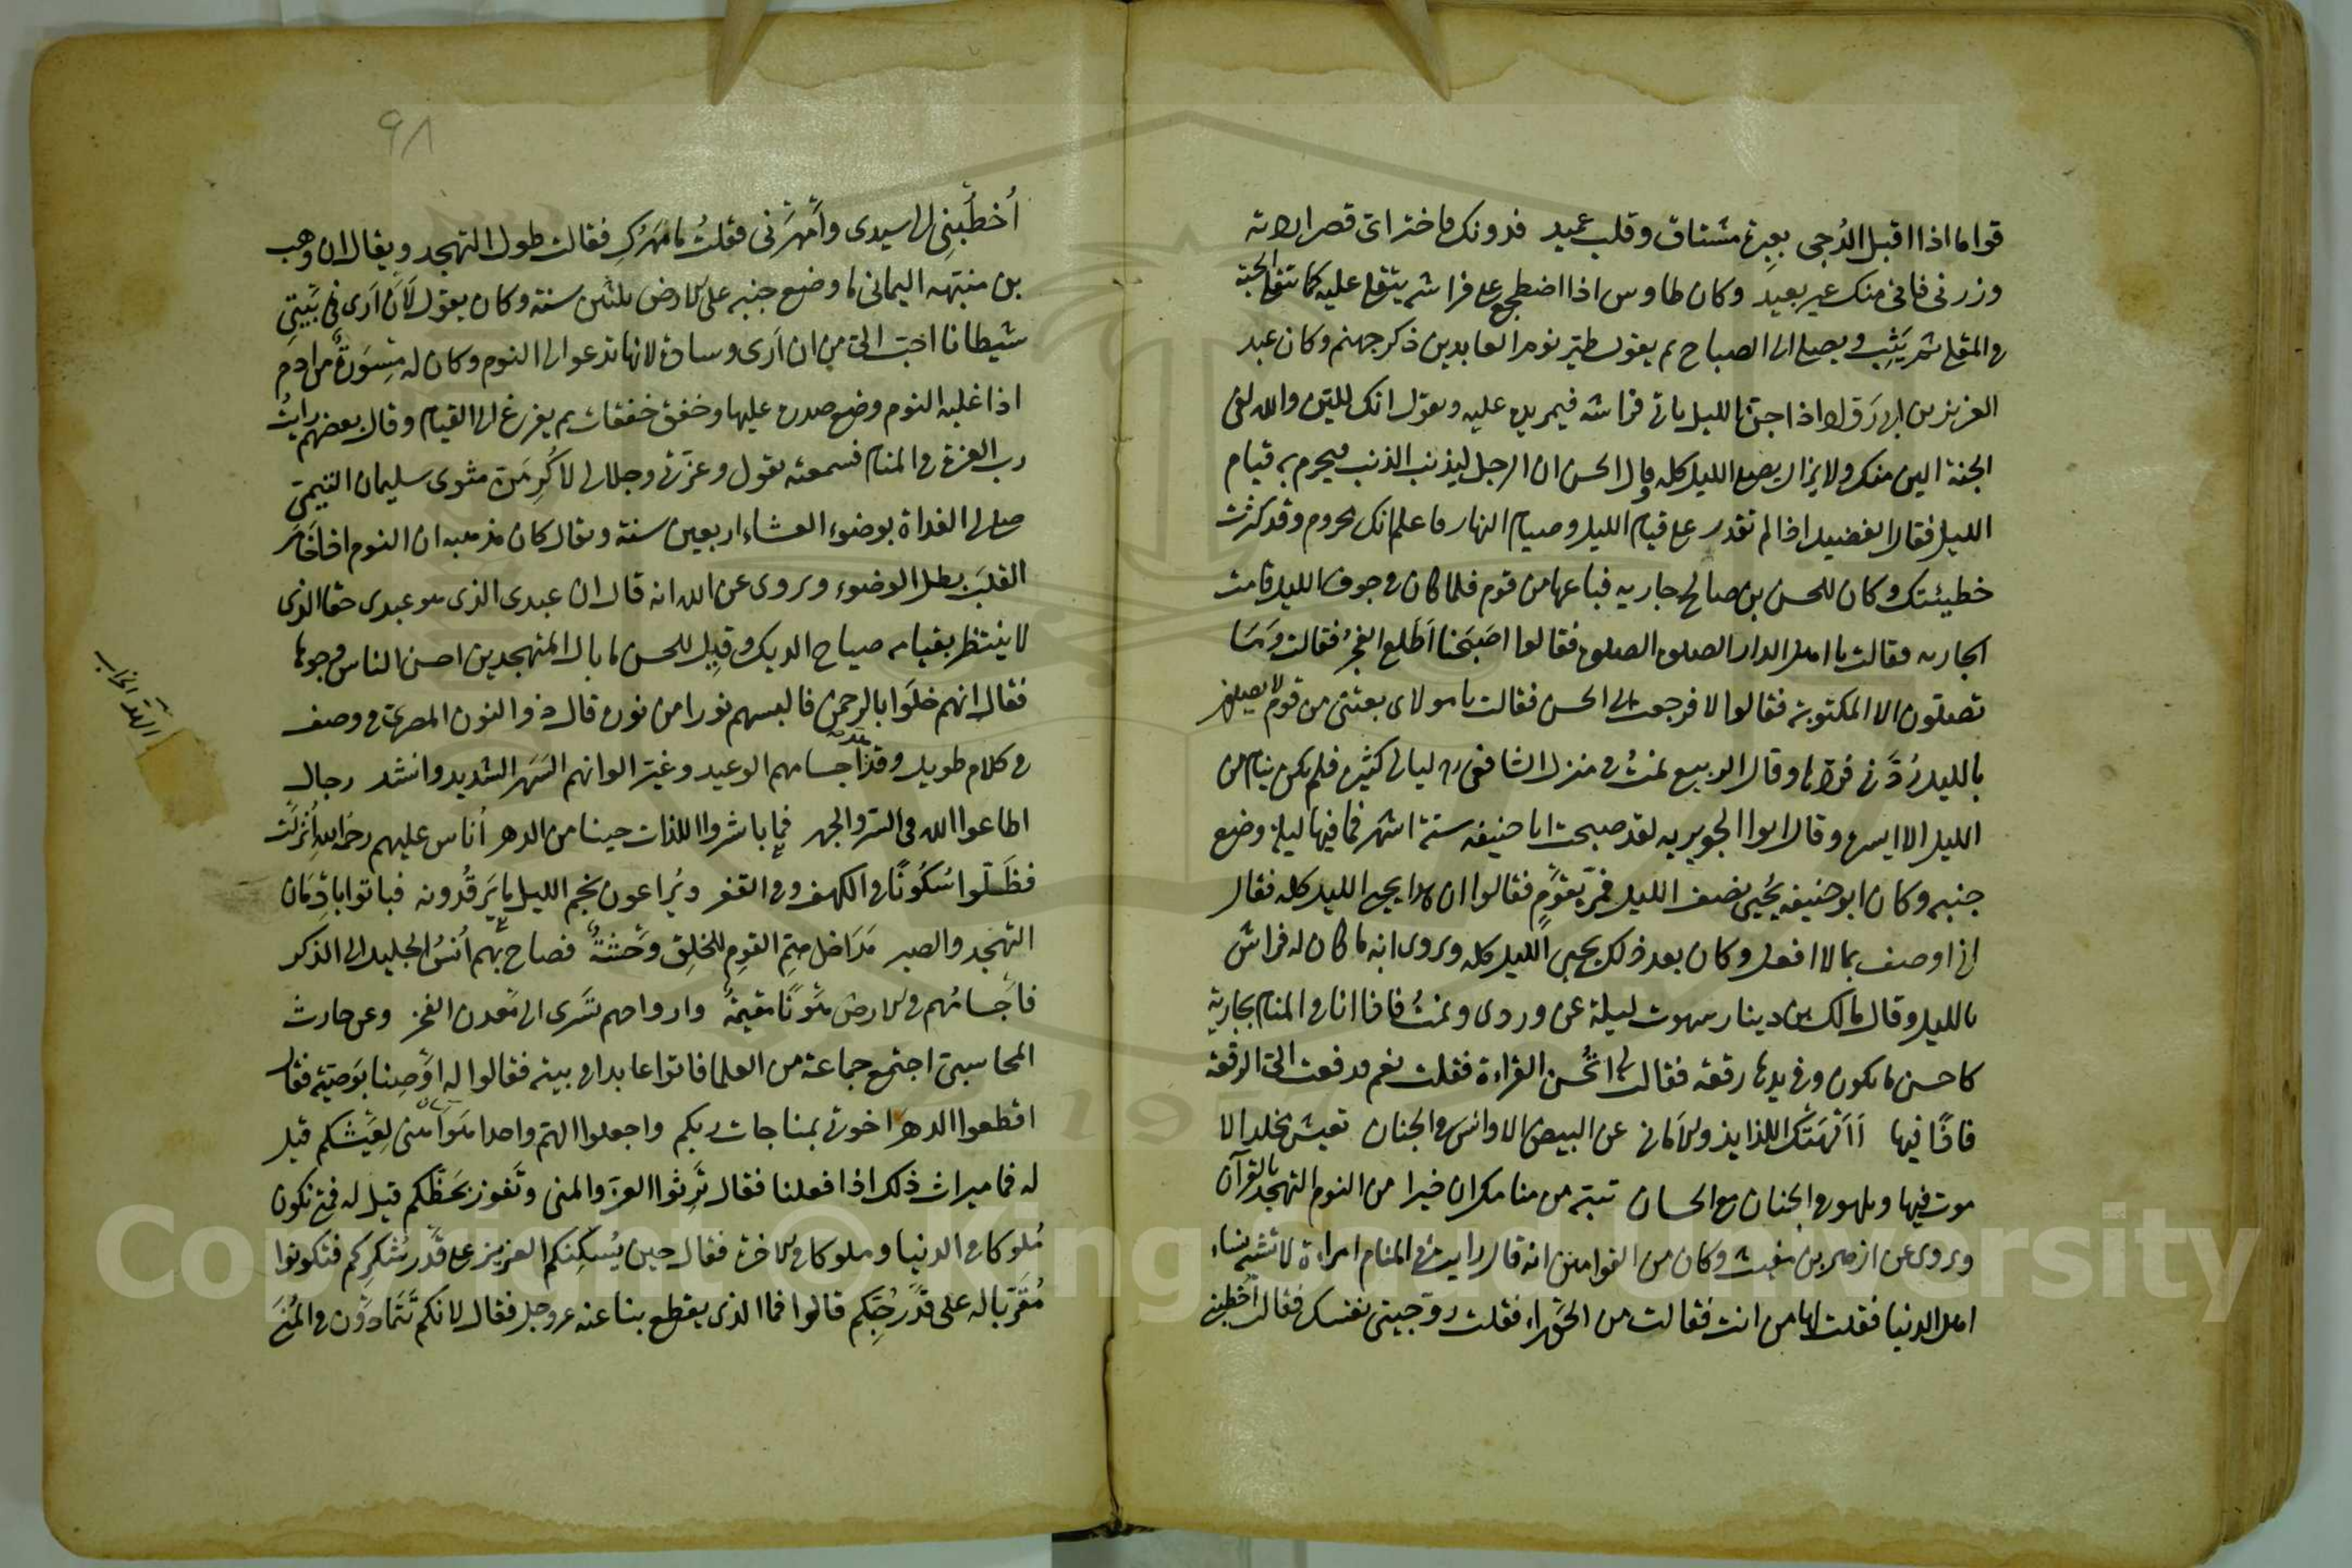 قواما اذا اقبل الدُجى بعبرة مشتاق وقلب عميد فدونك فاختر اى قصر اردته
وزرنى فانى منك غير بعيد وكان طاوس اذا اضطجع على فراشه يتقلى عليه كما تتقلى الحبة
فى المقلى ثم يَثِب ويصلى الى الصباح ثم يقول طيّر نوم العابدين ذكر جهنم وكان عبد
العزيز بن ابى رَوّاد اذا جن الليل ياتى فراشه فيمر يده عليه ويقول انك لليّن والله لفى
الجنة الين منك ولا يزال يصلى الليل كله وقال الحسن ان الرجل ليذنب الذنب فيحرم به قيام
الليل فقال الفضيل اذا لم تقدر على قيام الليل وصيام النهار فاعلم انك محروم وقد كثرت
خطيئتك وكان للحسن بن صالح جاريه فباعها من قوم فلما كان فى جوف الليل قامت
الجاريه فقالت يا اهل الدار الصلوة الصلوة فقالوا اصبحنا اَطَلع الفجرُ فقالت وَمَا
تصلّون الا المكتوبة فقالوا لا فرجعت الى الحسن فقالت يا مولاى بعتنى من قوم لا يصلون
بالليل رُدّنى فردّها وقال الربيع نمتُ فى منزل الشافعى ره ليالى كثيرة فلم يكن ينام من
الليل الا ايسره وقال ابوا الجويريه لقد صحبت ابا حنيفه ستة اشهر فما فيها ليلة وضع
جنبه وكان ابو حنيفه يُحيى نصف الليل فمرّ بقومٍ فقالوا ان هذا يحيى الليل كله فقال
انى اوصف بما لا افعل وكان بعد ذلك يحيى الليل كله ويروى انه ما كان له فراش
بالليل وقال مالك بن دينار سهوت ليلة عن وردى ونمتُ فاذا انا فى المنام بجارية
كاحسن ما يكون وفى يدها رقعه فقالت لى اتُحسن القراءة فقلت نعم فدفعت الىّ الرقعه
فاذًا فيها أَأَلْهَتْكَ اللذايذ والامانى عن البيض الاوانس فى الجنان تعيش مخلدا لا
موت فيها وتلهو فى الجنان مع الحسان تنبّه من منامك ان خيرا من النوم التهجد بالقرآن
ويروى عن ازهر بن مغيث وكان من القوامين انه قال رايت فى المنام امراءة لا تشبه نساء
اهل الدنيا فقلت لها من انت فقالت من الحَوراء فقلت زوّجينى نفسك فقالت اُخطبنى
٩٨
اُخطُبْنِى الى سيدى وأَمْهَرَنى فقلتُ ما مَهْرُكِ فقالت طول التهجد ويقال ان وهب
بن منبّهه اليمانى ما وضع جنبه على الارض ثلثين سنة وكان يقول لَاَنْ اَرى فى بَيْتِى
شيطانا احبّ الىّ من ان اَرى وسادة لانها تدعو الى النوم وكان له مِسْوَرَةٌ من ادم
اذا غلبه النوم وضع صدره عليها وخفق خفقات ثم يفزع الى القيام وقال بعضهم رايتُ
رب العزة فى المنام فسمعته يقول وعزّتى وجلالى لاُكْرِمَنّ مثوى سليمان التيمى
صلى لى الغداة بوضوء العشاء اربعين سنة ويقال كان مذهبه ان النوم اذا خَامَرَ
القلبَ بطل الوضوء ويروى عن الله انه قال ان عبدى الذى هو عبدى حقا الذى
لا ينتظر بقيامه صياح الديك وقيل للحسن ما بال المتهجدين احسن الناس وجوها
فقال انهم خلَوا بالرحمن فالبسهم نورا من نوره قال ذو النون المصرى فى وصف
فى كلام طويل وقذ اجسامهم الوعيد وغيّر الوانهم السَهر الشديد وانشد رجال
اطاعوا الله فى السّر والجهر فما باشروا اللذات حينا من الدهر أُناس عليهم رحمةُ اللهِ اُنْزِلَتْ
فظَلّوا سُكُونًا فى الكهف وفى القفر ويُراعون نجم الليل ما يَرقُدُونه فباتوا بادِمَان
التهجد والصبر فَداخل همّ القومِ للخلق وَحْشَةٌ فصاح بهم اُنسُ الجليل الى الذكر
فأجسامُهم فى الارض هَوْنًا مقيمةٌ وارواحهم تَسْرى الى مَعدن الفخر وعن حارث
المحاسبى اجتمع جماعة من العلما فاتوا عابدا فى بيته فقالوا له اَوْصِنا بوَصيّة فقال
اقطعوا الدهر اخوتى بمناجات ربكم واجعلوا الهمّ واحدا هَوَ اَهنى لِعَيْشكم قيل
له فما ميراث ذلك اذا فعلنا فقال تُرِثوا العزّ والمنى وتَفوز بحَظّكم قيل له فمتى نكون
مُلوكا فى الدنيا وملوكا فى الاخرة فقال حين يُسكِنكم العزيز على قَدْر شُكركم فتكونوا
مُقَرّبا له على قَدْرِ حُبّكم قالوا فما الذى يقطع بنا عنه عز وجل فقال لانكم تَتَمادَوْن فى المُنَى